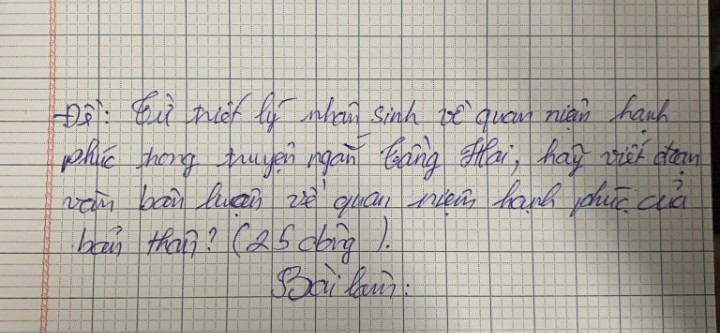 Đề: Từ triết lý nhân sinh về quan niệm hạnh
phúc trong truyện ngắn Tầng Hai, hãy viết đoạn
văn bàn luận về quan niệm hạnh phúc của
bản thân? (25 dòng).
Bài làm: